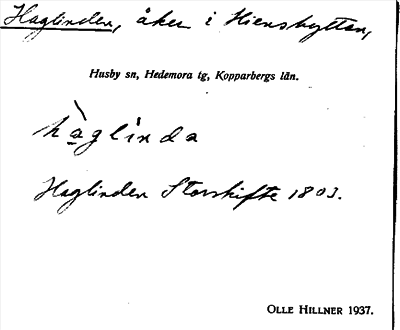 Haglinden, åker i Hienshyttan,
Husby sn, Hedemora tg, Kopparbergs län.
hàglìnda
Haglinden Storskifte 1803.
OLLE HILLNER 1937.